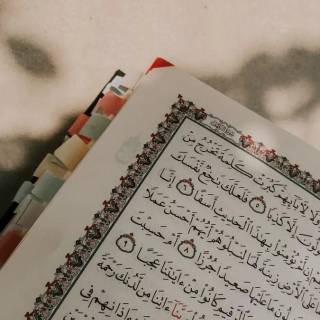 لَا لِأَبَآئِهِمْ كَبُرَتْ كَلِمَةً تَخْرُجُ مِنْ
إِلَّا كَذِبًا ٥ فَلَعَلَّكَ بَٰخِعٌ نَّفْسَكَ
إِن لَّمْ يُؤْمِنُوا۟ بِهَٰذَا ٱلْحَدِيثِ أَسَفًا ٦ إِنَّا
عَلَى ٱلْأَرْضِ زِينَةً لَّهَا لِنَبْلُوَهُمْ أَيُّهُمْ أَحْسَنُ عَمَلًا
لَجَٰعِلُونَ مَا عَلَيْهَا صَعِيدًا جُرُزًا ٨ أَمْ حَسِبْتَ
كَانُوا۟ مِنْ ءَايَٰتِنَا عَجَبًا ٩
رَبَّنَآ ءَاتِنَا مِن لَّدُنكَ رَحْمَةً
ءَاذَانِهِمْ فِى